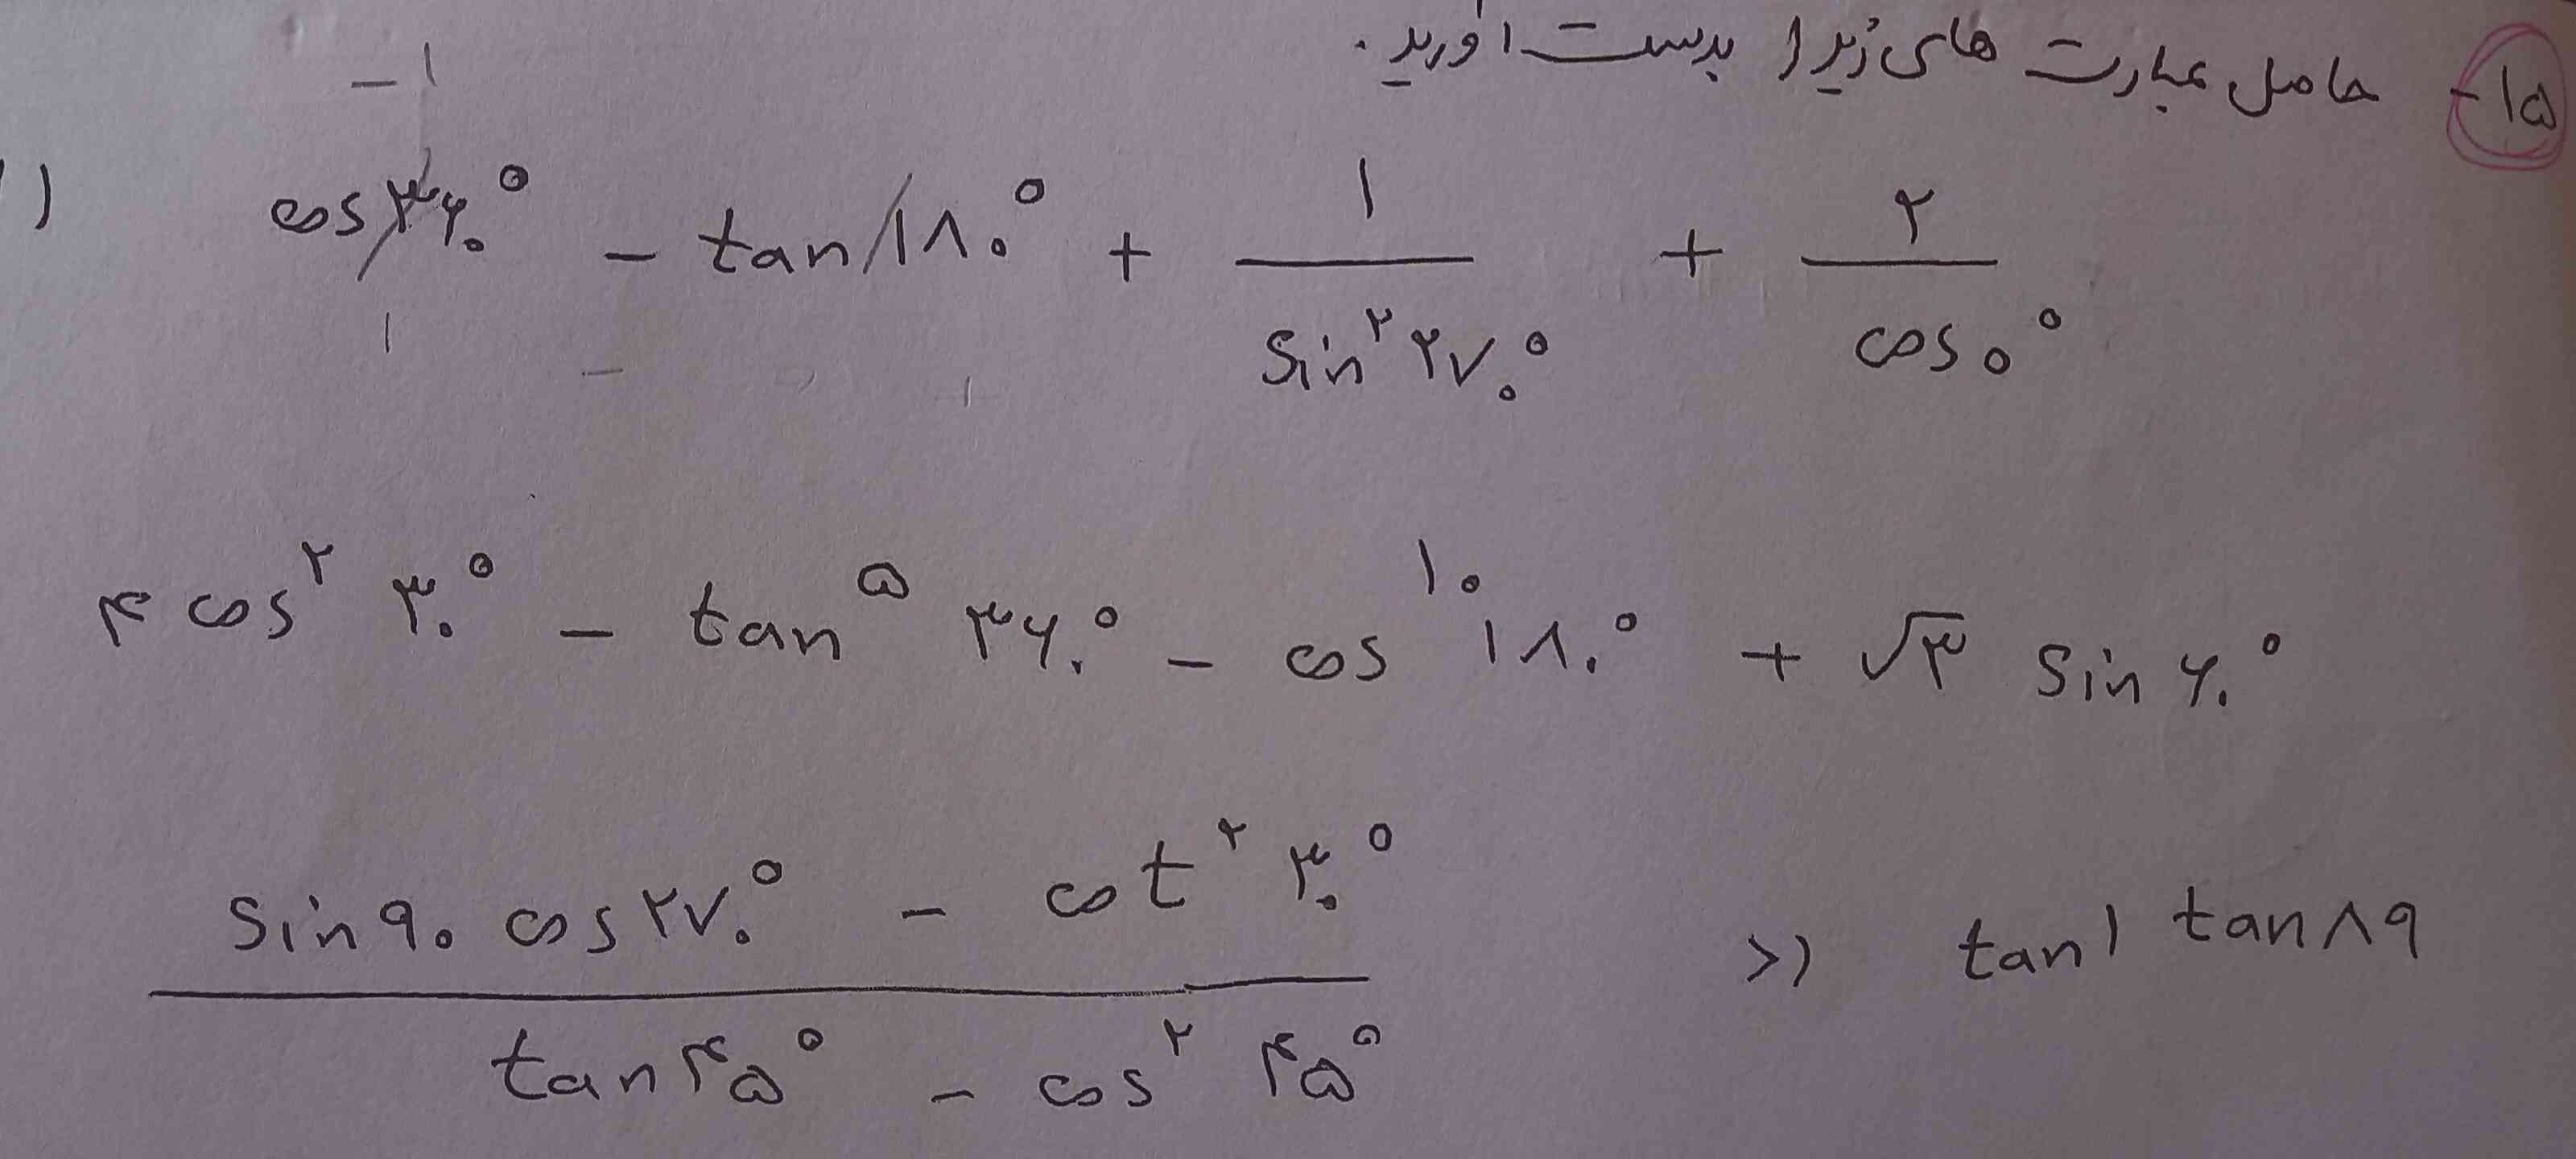 ۱۵- حاصل عبارت های زیر را بدست آورید.
-۱
۱) cos ۳۶۰° - tan ۱۸۰° + ۱ / sin² ۲۷۰° + ۲ / cos ۰°
۱
۴ cos² ۳۰° - tan⁵ ۳۶۰° - cos¹⁰ ۱۸۰° + √۳ sin ۶۰°
sin ۹۰ cos ۲۷۰° - cot² ۳۰°
tan ۴۵° - cos² ۴۵°
د) tan ۱ tan ۸۹